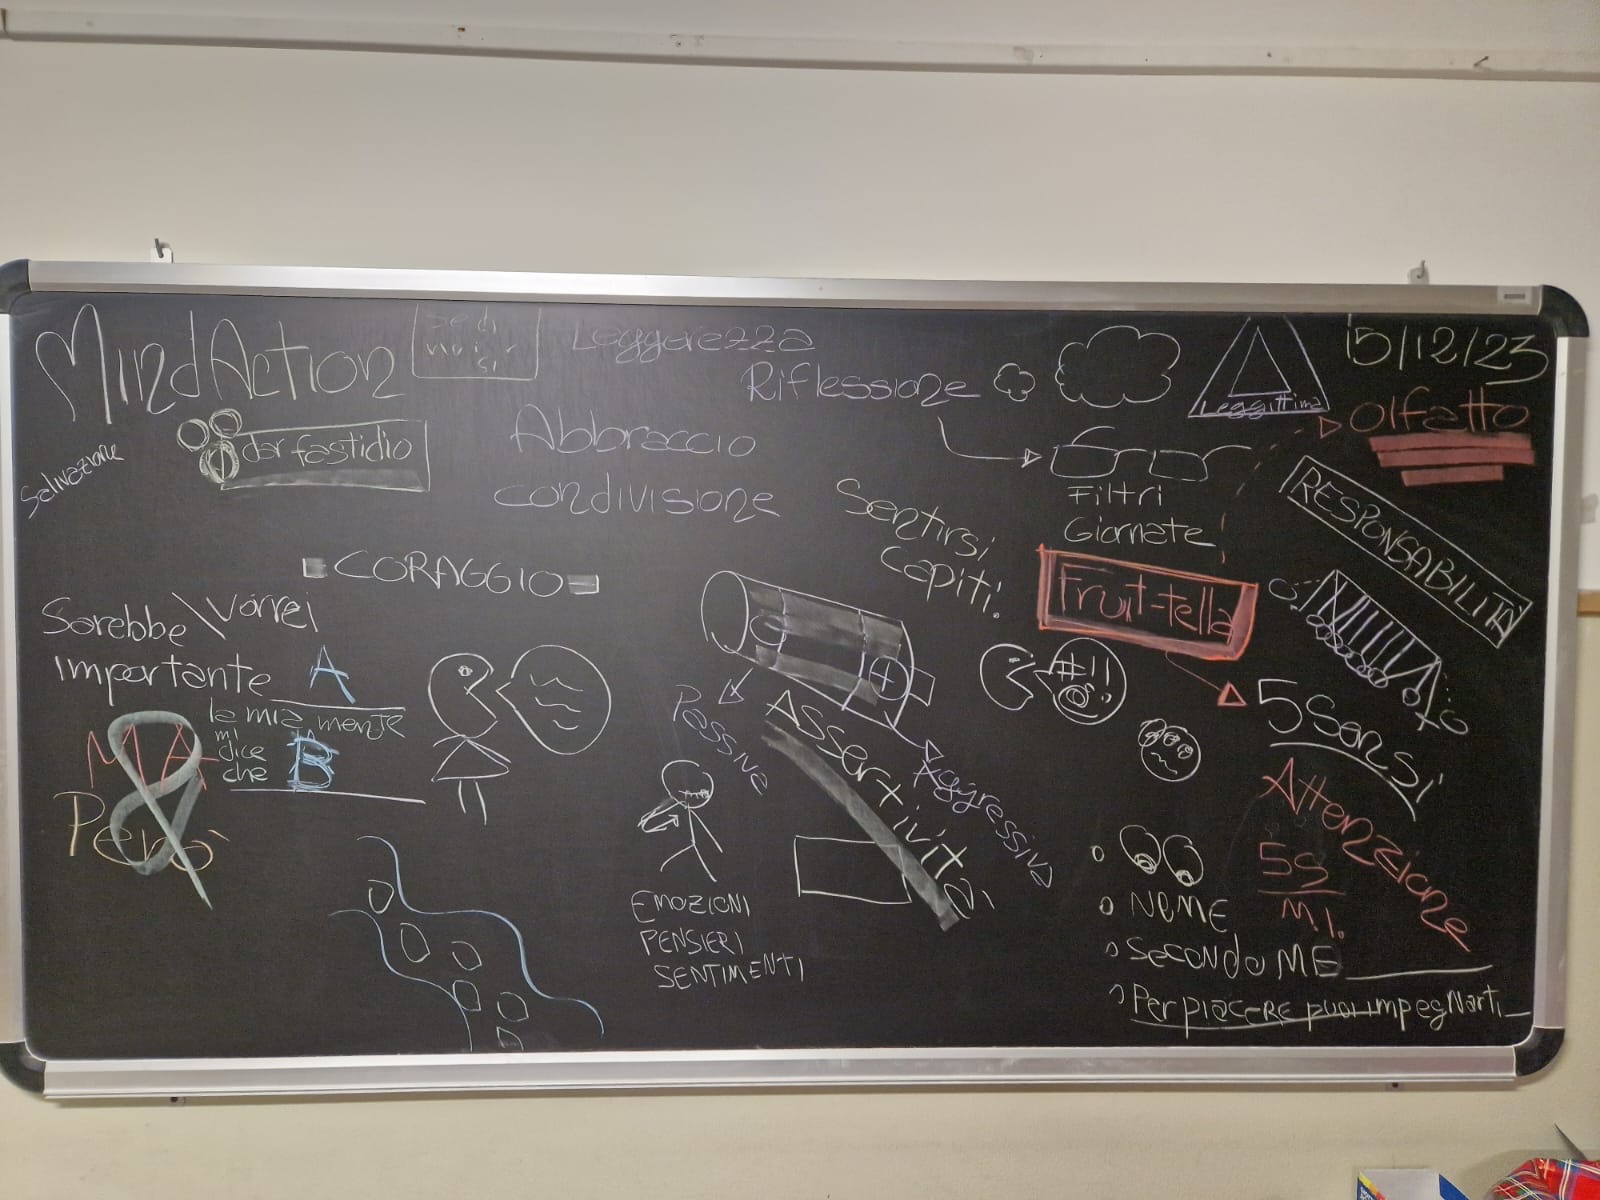 MindAction
se di
si
Leggerezza
Riflessione
Leggittima
15/12/23
olfatto
Salivazione
dar fastidio
Abbraccio
condivisione
Filtri
Giornate
RESPONSABILITÀ
Sentirsi
Capiti!
CORAGGIO
Fruit-tella
Sarebbe \ Vorrei
importante A
la mia mente
mi
dice
che B
MA
Però
#!!
Passiva
Assertività
Aggressiva
5 Sensi
Attenzione
5S
M.I.
EMOZIONI
PENSIERI
SENTIMENTI
NEME
SECONDO ME
Per piacere puoi impegnarti